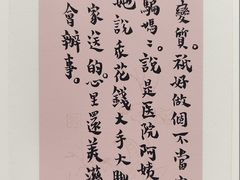 變質。祇好做個不當
騙媽〻說是医院阿姨
她說我花錢大手大脚
家送的心里還美滋
會辦事。